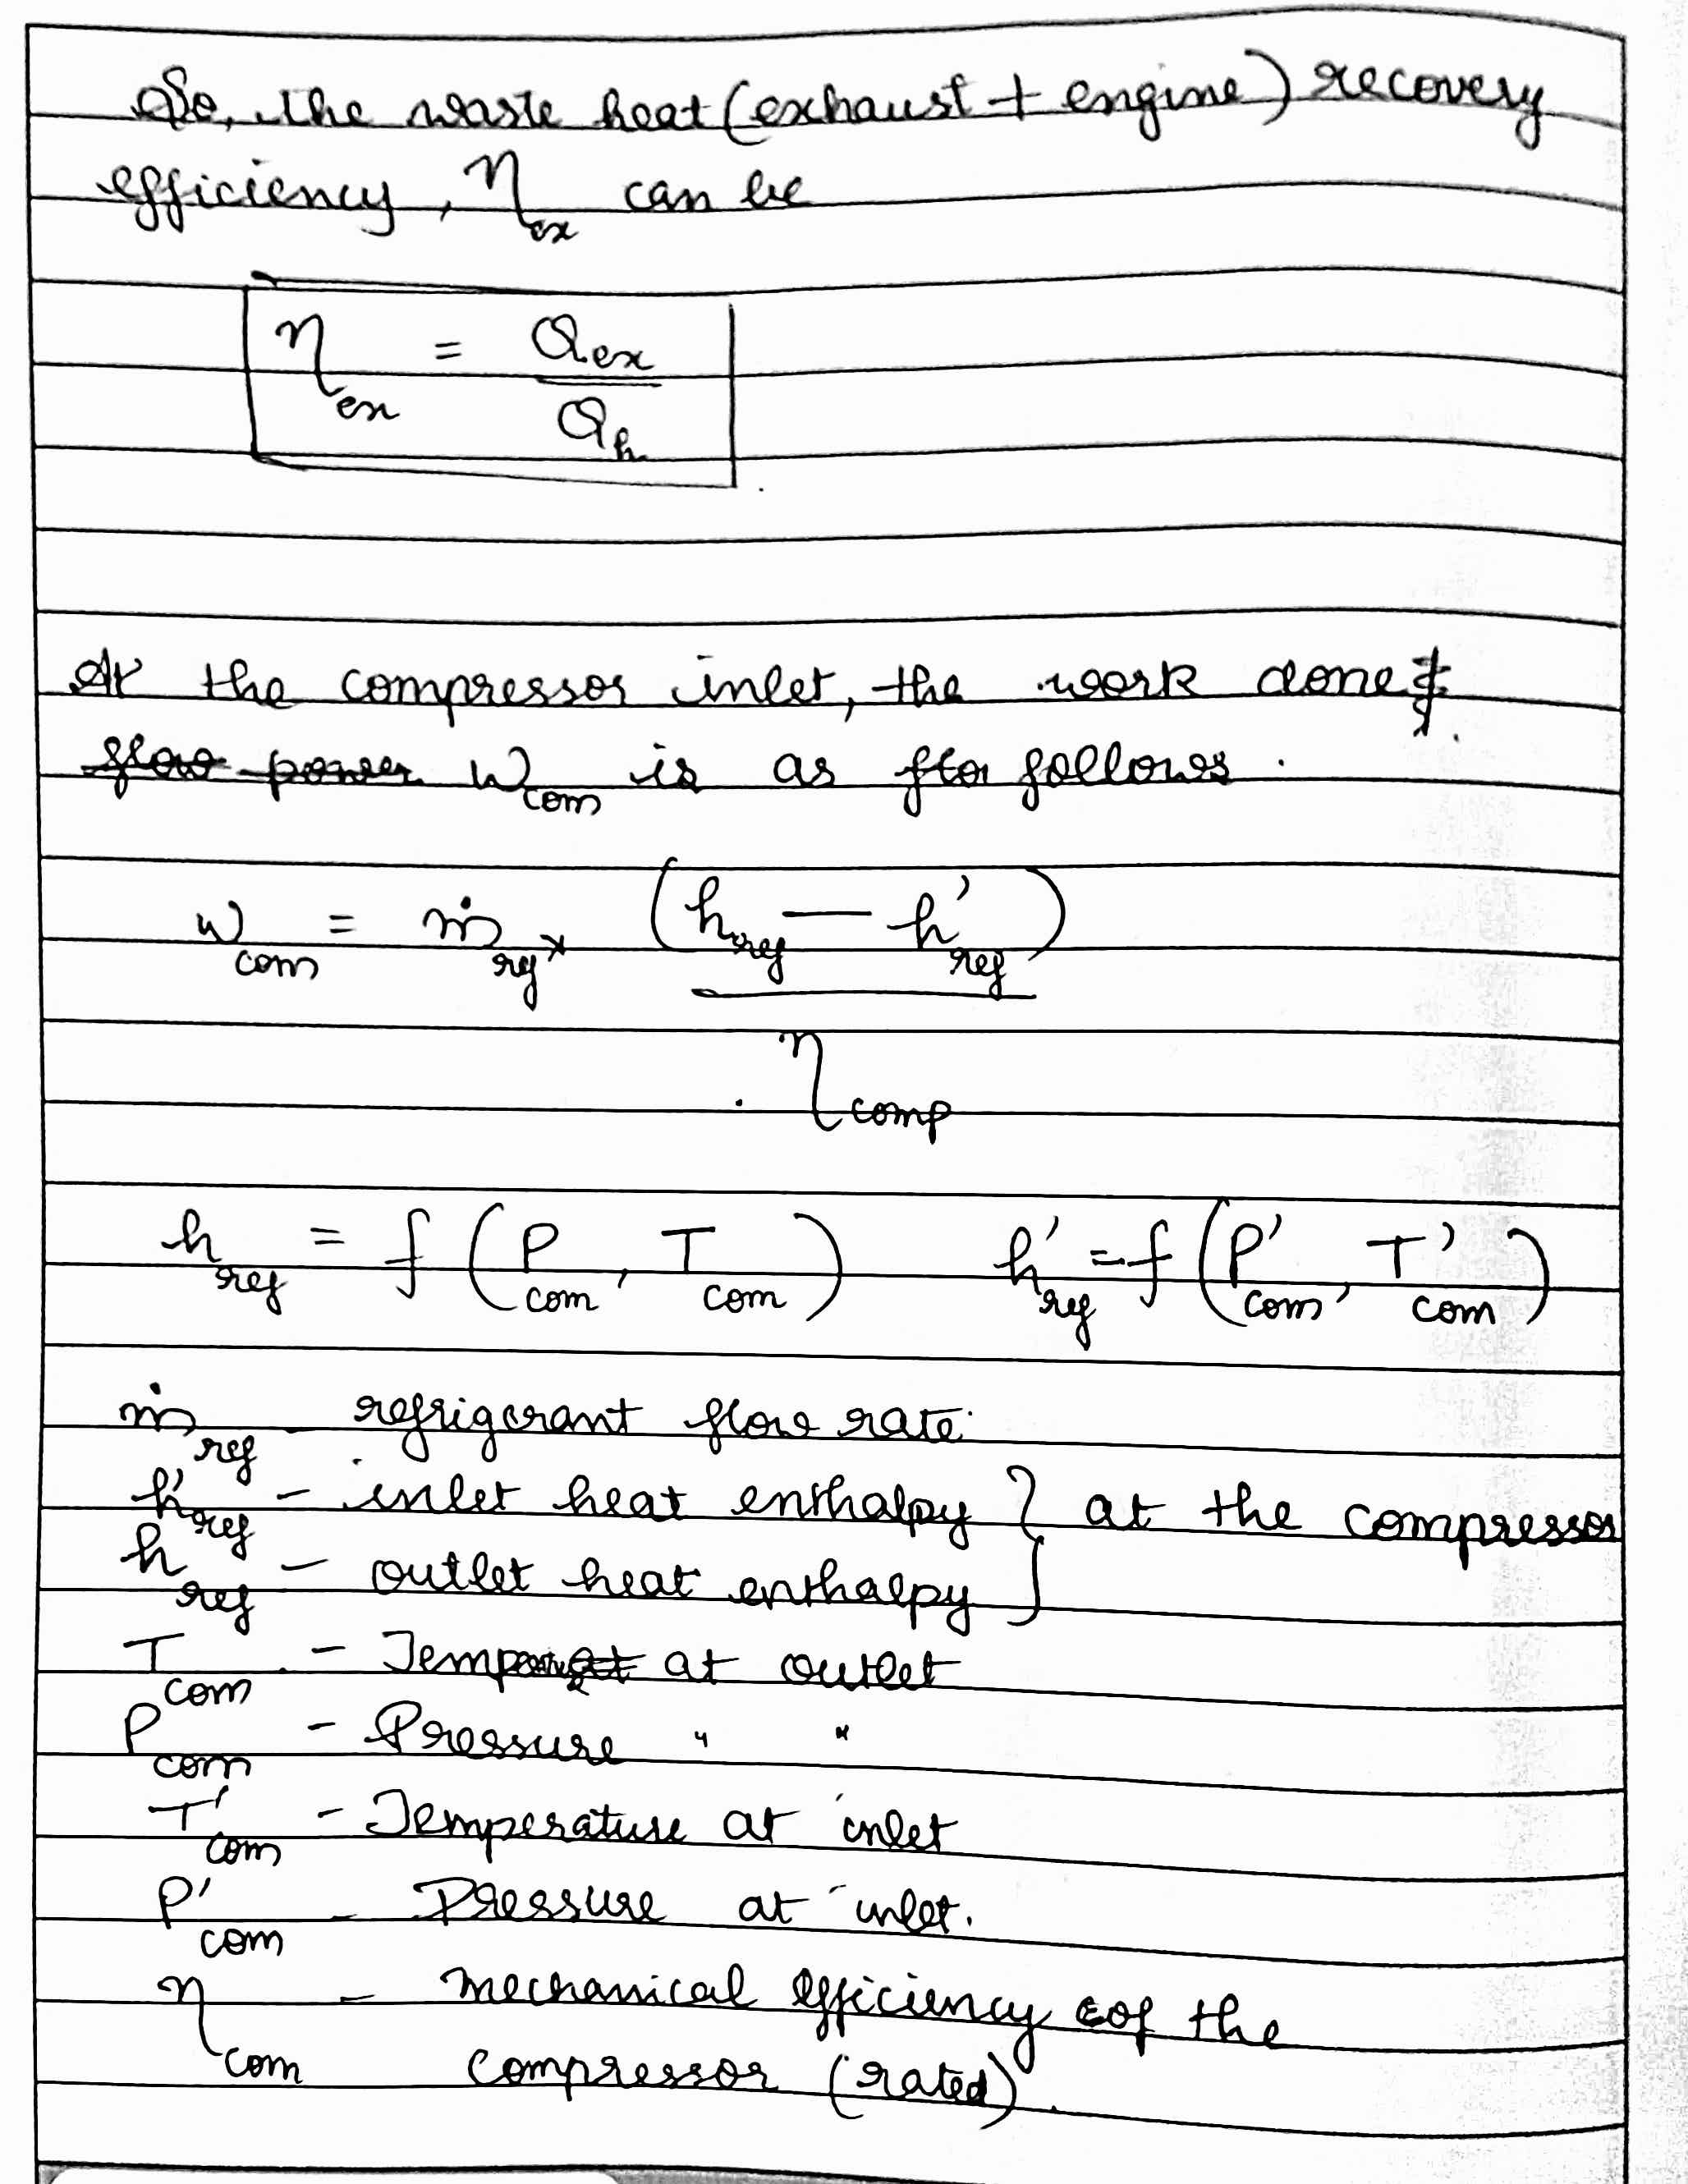 So, the waste heat (exhaust + engine) recovery
efficiency, η_ex can be
η_ex = Q_ex / Q_h
At the compressor inlet, the work done &
flow power W_com is as flo follows.
W_com = ṁ_ref × (h_ref — h'_ref) / η_comp
h_ref = f (P_com, T_com) h'_ref = f (P'_com, T'_com)
ṁ_ref - refrigerant flow rate.
h'_ref - inlet heat enthalpy } at the compressor
h_ref - outlet heat enthalpy }
T_com - Temp at outlet
P_com - Pressure " "
T'_com - Temperature at inlet
P'_com - Pressure at inlet.
η_com - mechanical efficiency of the
compressor (rated).